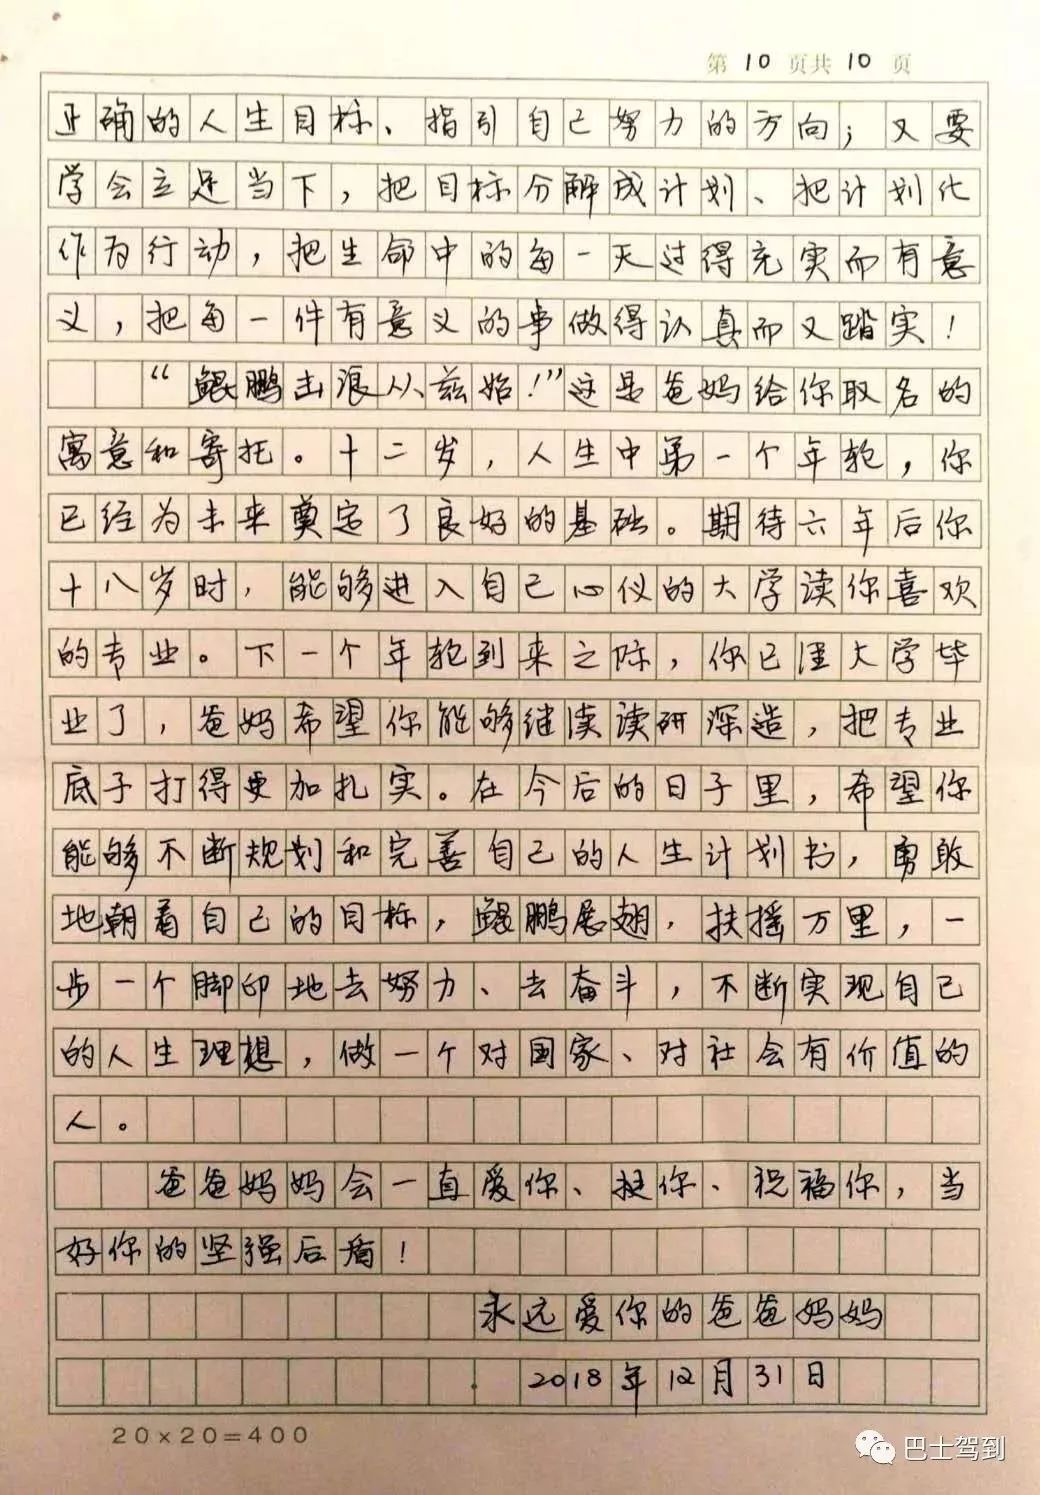 第 10 页共 10 页
正确的人生目标、指引自己努力的方向；又要
学会立足当下，把目标分解成计划、把计划化
作为行动，把生命中的每一天过得充实而有意
义，把每一件有意义的事做得认真而又踏实！
“鲲鹏击浪从兹始！”这是爸妈给你取名的
寓意和寄托。十二岁，人生中第一个年轮，你
已经为未来奠定了良好的基础。期待六年后你
十八岁时，能够进入自己心仪的大学读你喜欢
的专业。下一个年轮到来之际，你已经大学毕
业了，爸妈希望你能够继续读研深造，把专业
底子打得更加扎实。在今后的日子里，希望你
能够不断规划和完善自己的人生计划书，勇敢
地朝着自己的目标，鲲鹏展翅，扶摇万里，一
步一个脚印地去努力、去奋斗，不断实现自己
的人生理想，做一个对国家、对社会有价值的
人。
爸爸妈妈会一直爱你、挺你、祝福你，当
好你的坚强后盾！
永远爱你的爸爸妈妈
2018年12月31日
20×20=400
巴士驾到